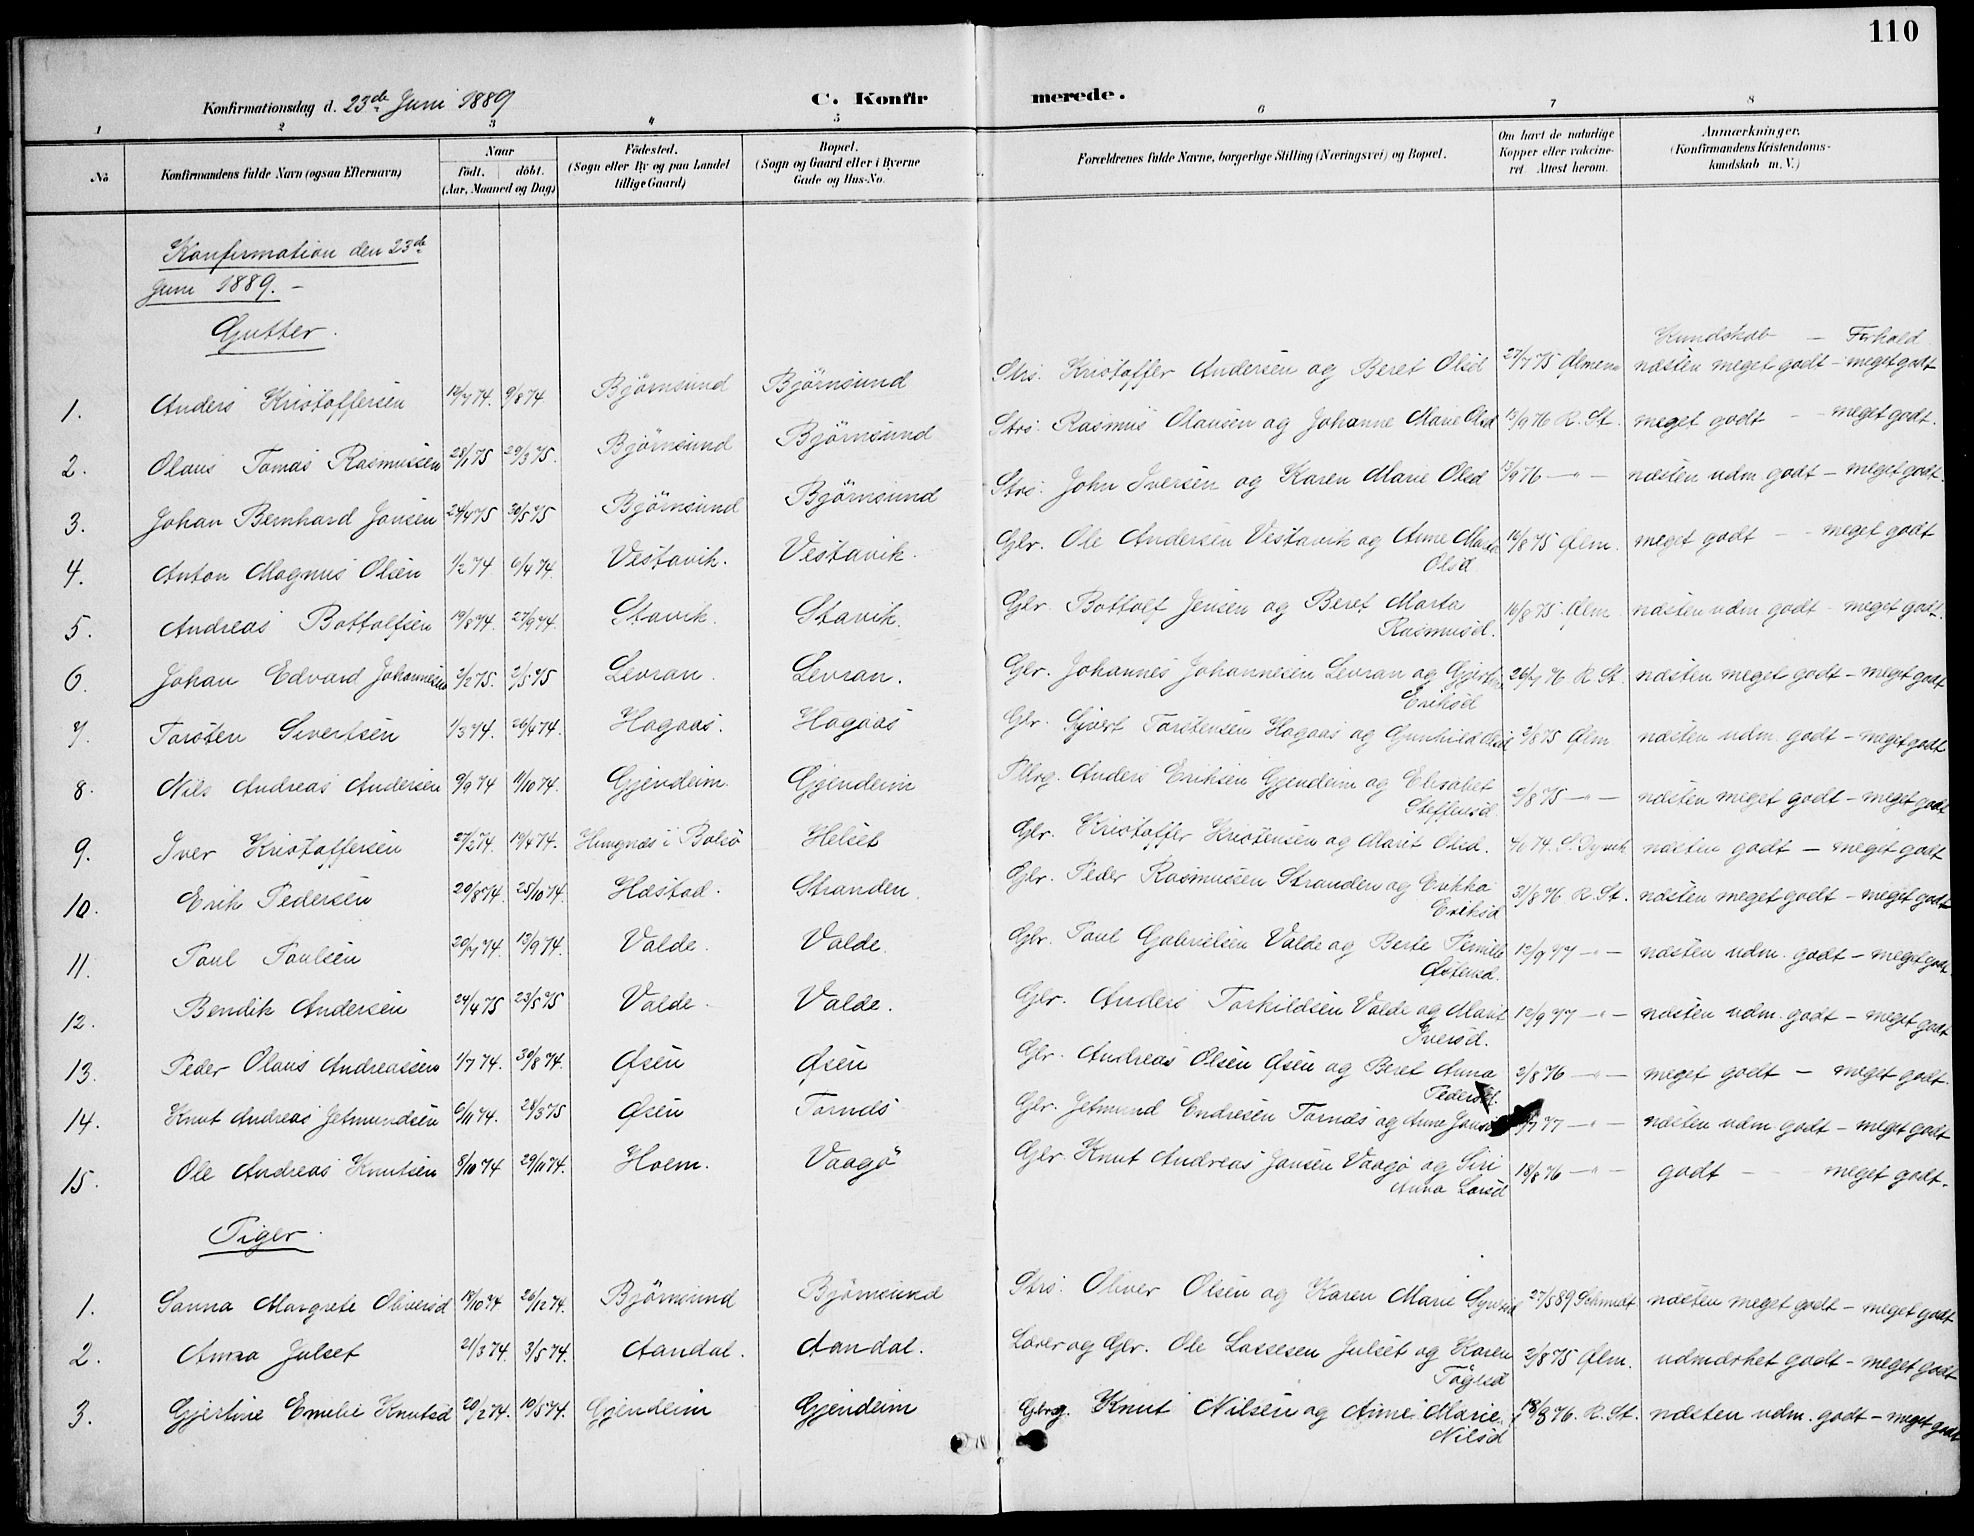 110
Konfirmationsdag d. 23de Juni 1889 C. Konfirmerede.
1 2 3 4 5 6 7 8
No
Konfirmandens fulde Navn (ogsaa Efternavn)
Naar
födt. döbt.
(Aar, Maaned og Dag)
Födested.
(Sogn eller By og paa Landet
tillige Gaard)
Bopæl.
(Sogn og Gaard eller i Byerne
Gade og Hus-No.
Forældrenes fulde Navne, borgerlige Stilling (Næringsvei) og Bopæl.
Om havt de naturlige
Kopper eller vakcine-
ret Attest herom.
Anmærkninger,
(Konfirmandens Kristendoms-
kundskab m. V.)
Konfirmation den 23de
Juni 1889. –
Gutter.
Kundskab – Forhold
1. Anders Kristoffersen 9/8 74 Björnsund Björnsund Strs. Kristoffer Andersen og Beret Olsd næsten meget godt – meget godt
2. Olaus Tomas Rasmussen 28/1 75 29/3 75. Björnsund Björnsund Strs. Rasmus Olausen og Johanne Marie Olsd 13/9 76 R. St. meget godt – meget godt.
3. Johan Bernhard Jonsen 24/4 75 30/5 75 Björnsund Björnsund Strs. John Iversen og Karen Marie Olsd 13/9 76 – " – næsten udm godt – meget godt.
4. Anton Magnus Olsen 1/2 74 6/4 74. Vestavik. Vestavik. Glr. Ole Andersen Vestavik og Anne Marta
Olsd 16/8 75 Ølm. meget godt – meget godt
5. Andreas Bottolfsen 19/8 74. 27/9 74. Stavik. Stavik. Glr. Bottolf Jensen og Beret Marta
Rasmusd. 16/8 75 Ølm næsten udm godt – meget godt.
6. Johan Edvard Johannesen 3/2 75. 2/5 75 Levran. Levran. Glr. Johannes Johannesen Levran og
Eriksd R. St. næsten meget godt – meget godt
7. Torsten Sivertsen 1/3 74. 26/4 74. Hagaas. Hagaas Glr. Sivert Torstensen Hagaas og Gunhild Olsd 2/8 75 Ølm næsten udm. godt – meget godt
8. Nils Andreas Andersen 9/9 74 11/10 74. Gjendeim. Gjendeim Anders Eriksen Gjendeim og Elisabet
Steffensd. 2/8 75 – " – næsten meget godt – meget godt
9. Iver Kristoffersen 27/2 74. 19/4 74. i Bolsö Helset Glr. Kristoffer Kristensen og Marit Olsd. næsten godt – meget godt
10. Erik Pedersen 20/8 74. 25/10 74. Hæstad. Stranden. Glr. Peder Rasmussen Stranden og Erikka
Eriksd 31/8 76 R. St. næsten meget godt – meget godt
11. Paul Paulsen 20/7 74. 13/9 74. Valde. Valde. Glr. Paul Gabrielsen Valde og Berte Pernille
Østensd. 12/9 77 – " – næsten udm. godt – meget godt.
12. Bendik Andersen 24/4 75 23/5 75 Valde. Valde. Glr. Anders Torkildsen Valde og Marit
Iversd. 12/9 77 – " – næsten udm. godt – meget godt
13. Peder Olaus Andreassen 1/7 74. 30/8 74. Øsen Øsen Glr. Andreas Olsen Øsen og Beret Anna
Pedersd. 2/8 76 – " – meget godt – meget godt.
14. Knut Andreas Jetmundsen 6/11 74. 28/3 75 Øsen Tornes Glr. Jetmund Endresen Tornes og Anne 77 – " – næsten udm godt – meget godt
15. Ole Andreas Knutsen 8/10 74 29/11 74. Hoem. Vaagö Glr. Knut Andreas Jonsen Vaagö og Siri
Anna Larsd 18/8 76 – " – godt – meget godt.
Piger.
1. Sanna Margrete Oliversd 18/10 74 26/12 74. Björnsund Björnsund Strs. Oliver Olsen og Karen Marie 27/5 89 Schmidt næsten meget godt – meget godt
2. Anna Julset 21/3 74. 3/5 74. Aandal. Aandal. Lærer og Glr. Ole Lassesen Julset og Karen
2/8 75 Ølm. udmærket godt – meget godt
3. Gjertine Emelie Knutsd 20/2 74. 10/5 74. Gjendeim Gjendeim Knut Nilsen og Anne Marie
Nilsd 18/8 76. R. St. næsten udm. godt – meget godt